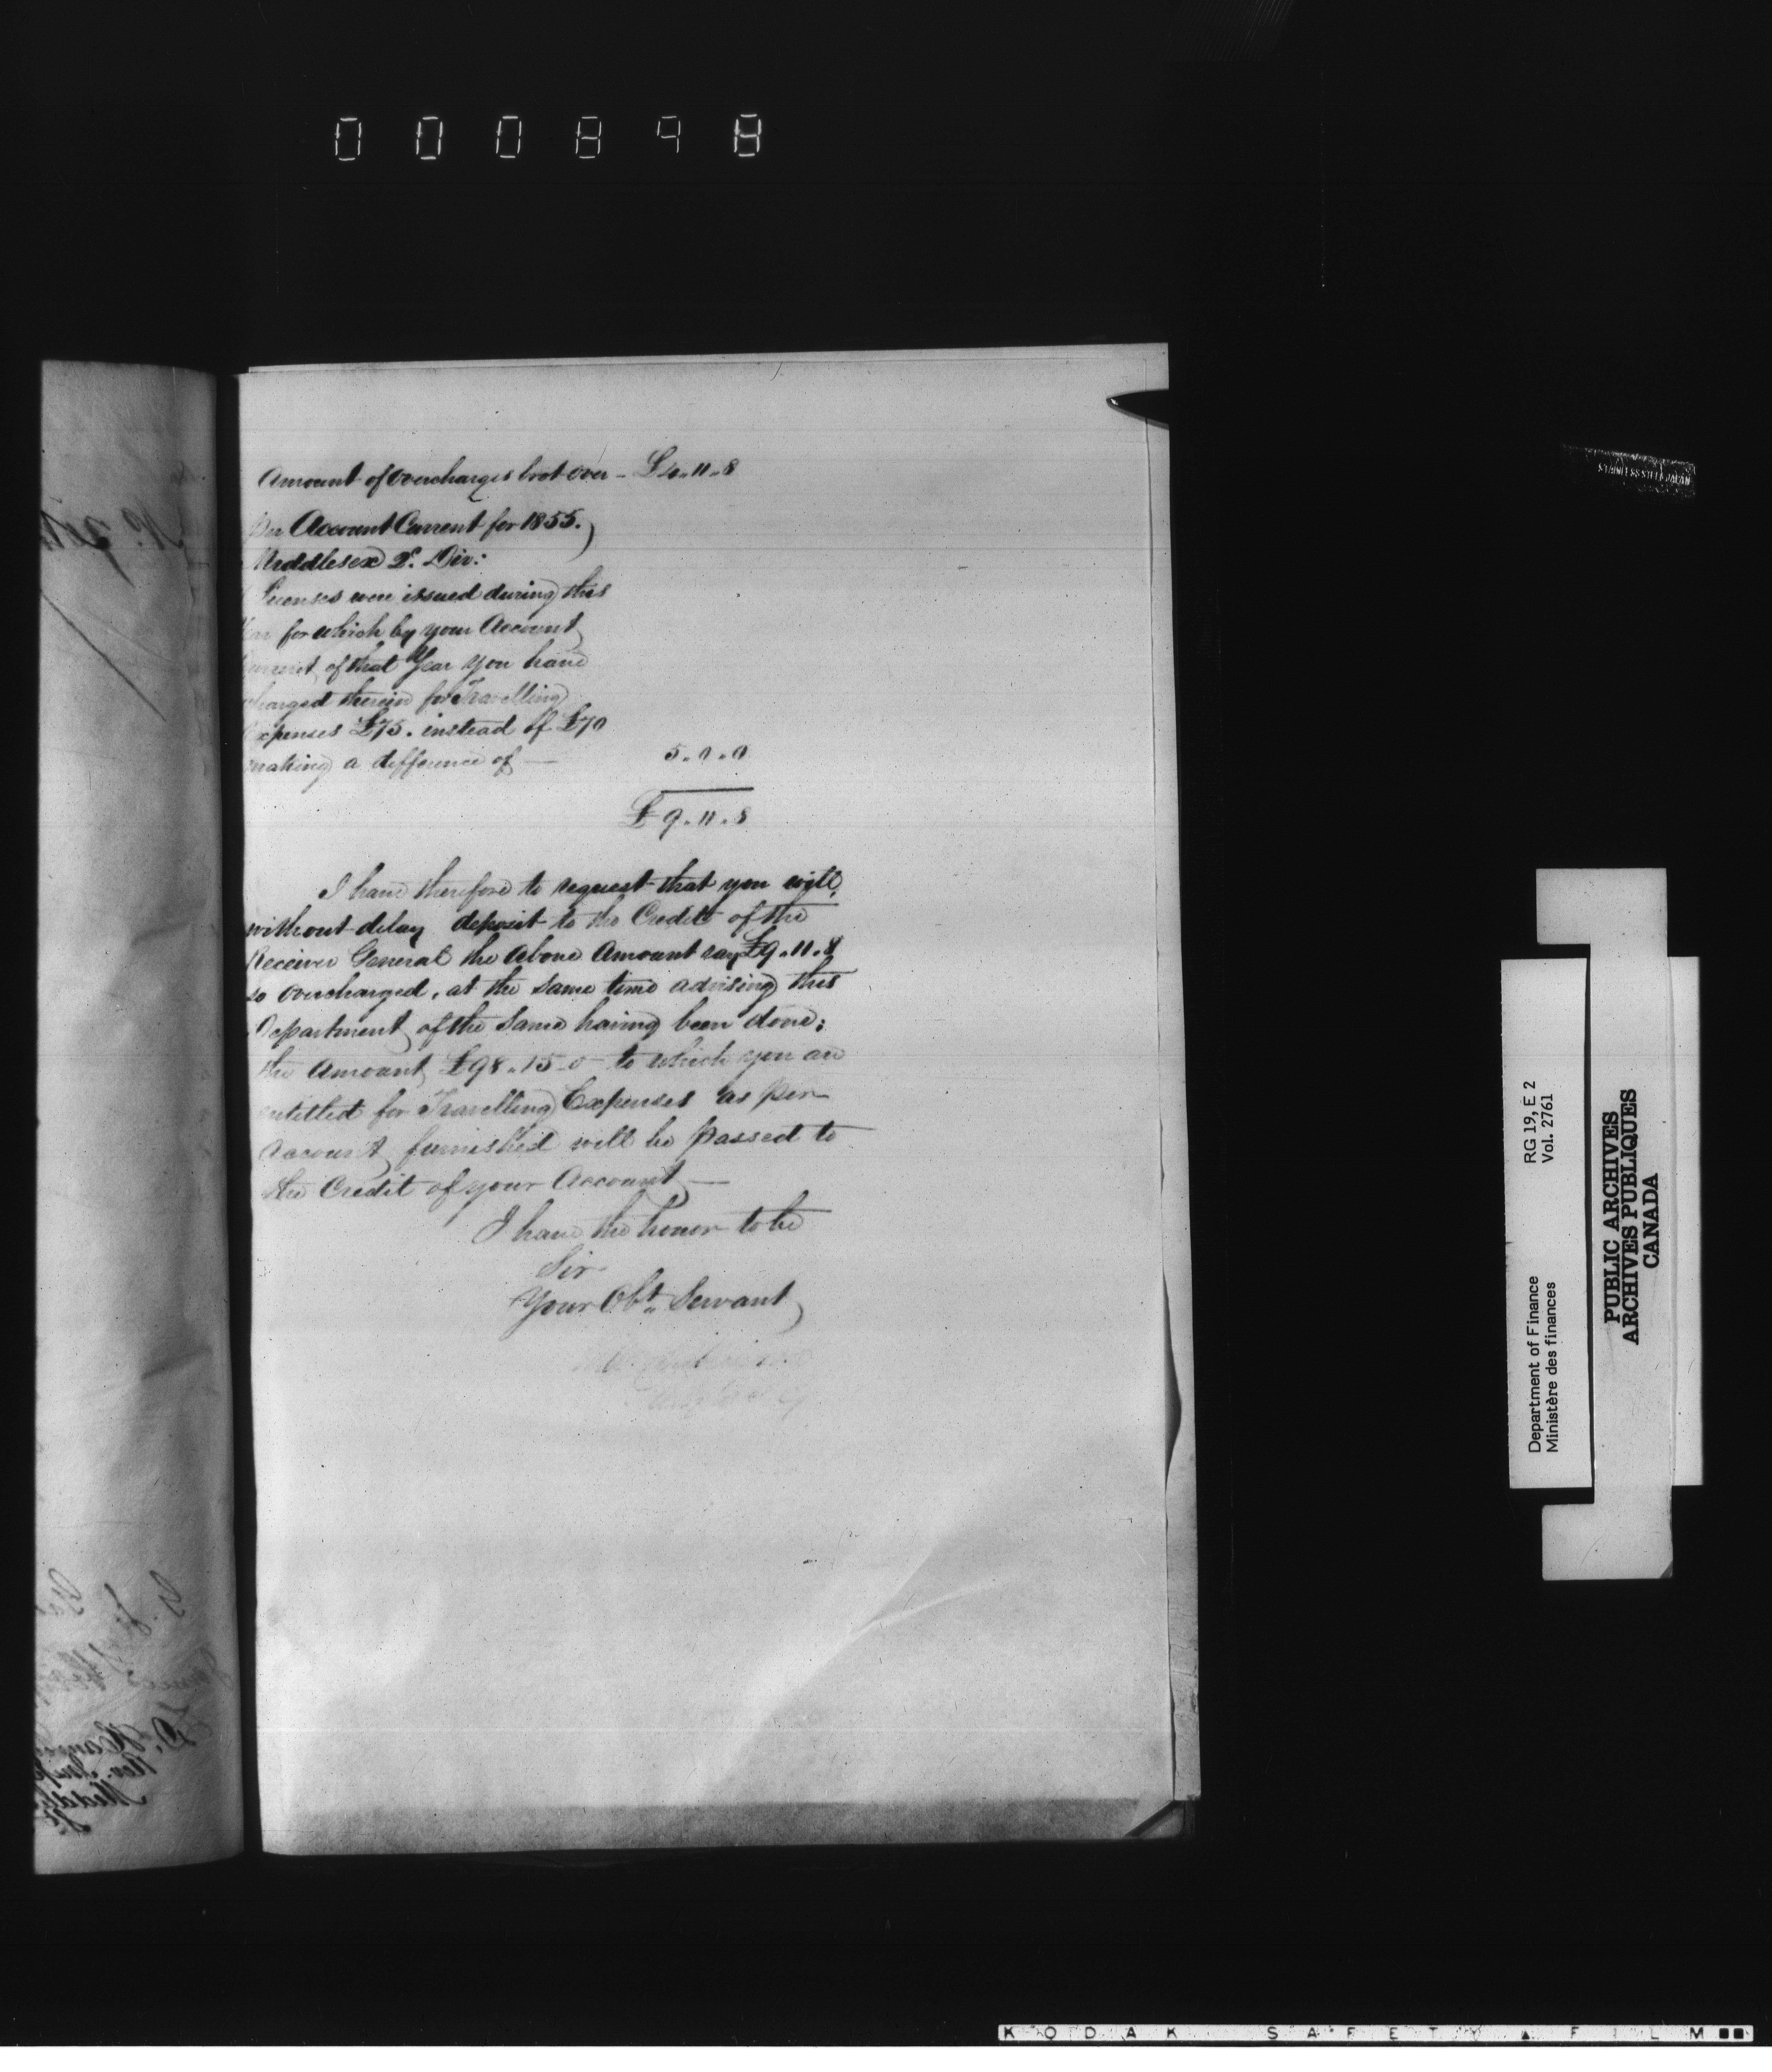 000898
Amount of overcharges brot over - £4.11.8
Per Account Current for 1855.
Middlesex 2d. Div:
Licenses were issued during this
Year for which by your Account
Current of that Year you have
charged therein for Travelling
Expenses £75. instead of £70
making a difference of — 5.0.0
£9.11.8
I have therefore to request that you will
without delay deposit to the Credit of the
Receiver General the above Amount say £9.11.8
so overcharged, at the same time advising this
Department of the same having been done;
the Amount £98.15.0 to which you are
entitled for Travelling Expenses as per
Account furnished will be passed to
the Credit of your Account —
I have the honor to be
Sir
Your Obt. Servant
Department of Finance
Ministère des finances
RG 19, E 2
Vol. 2761
PUBLIC ARCHIVES
ARCHIVES PUBLIQUES
CANADA
KODAK SAFETY FILM